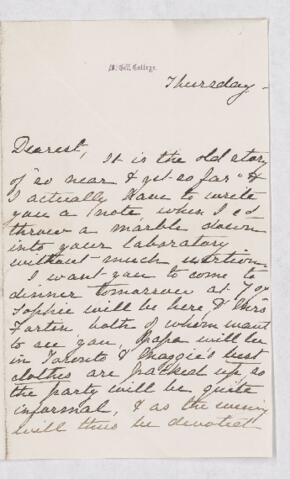 McGill College.
Thursday.
Dearest, It is the old story
of "so near & yet so far" &
I actually have to write
you a note, when I cd
throw a marble down
into your laboratory
without much exertion.
I want you to come to
dinner tomorrow at 7 of
Sophie will be here & Mrs
both of whom want
to see you, Papa will be
in Toronto & Maggie's best
clothes are packed up so
the party will be quite
informal, & as the evening
will thus be devoted